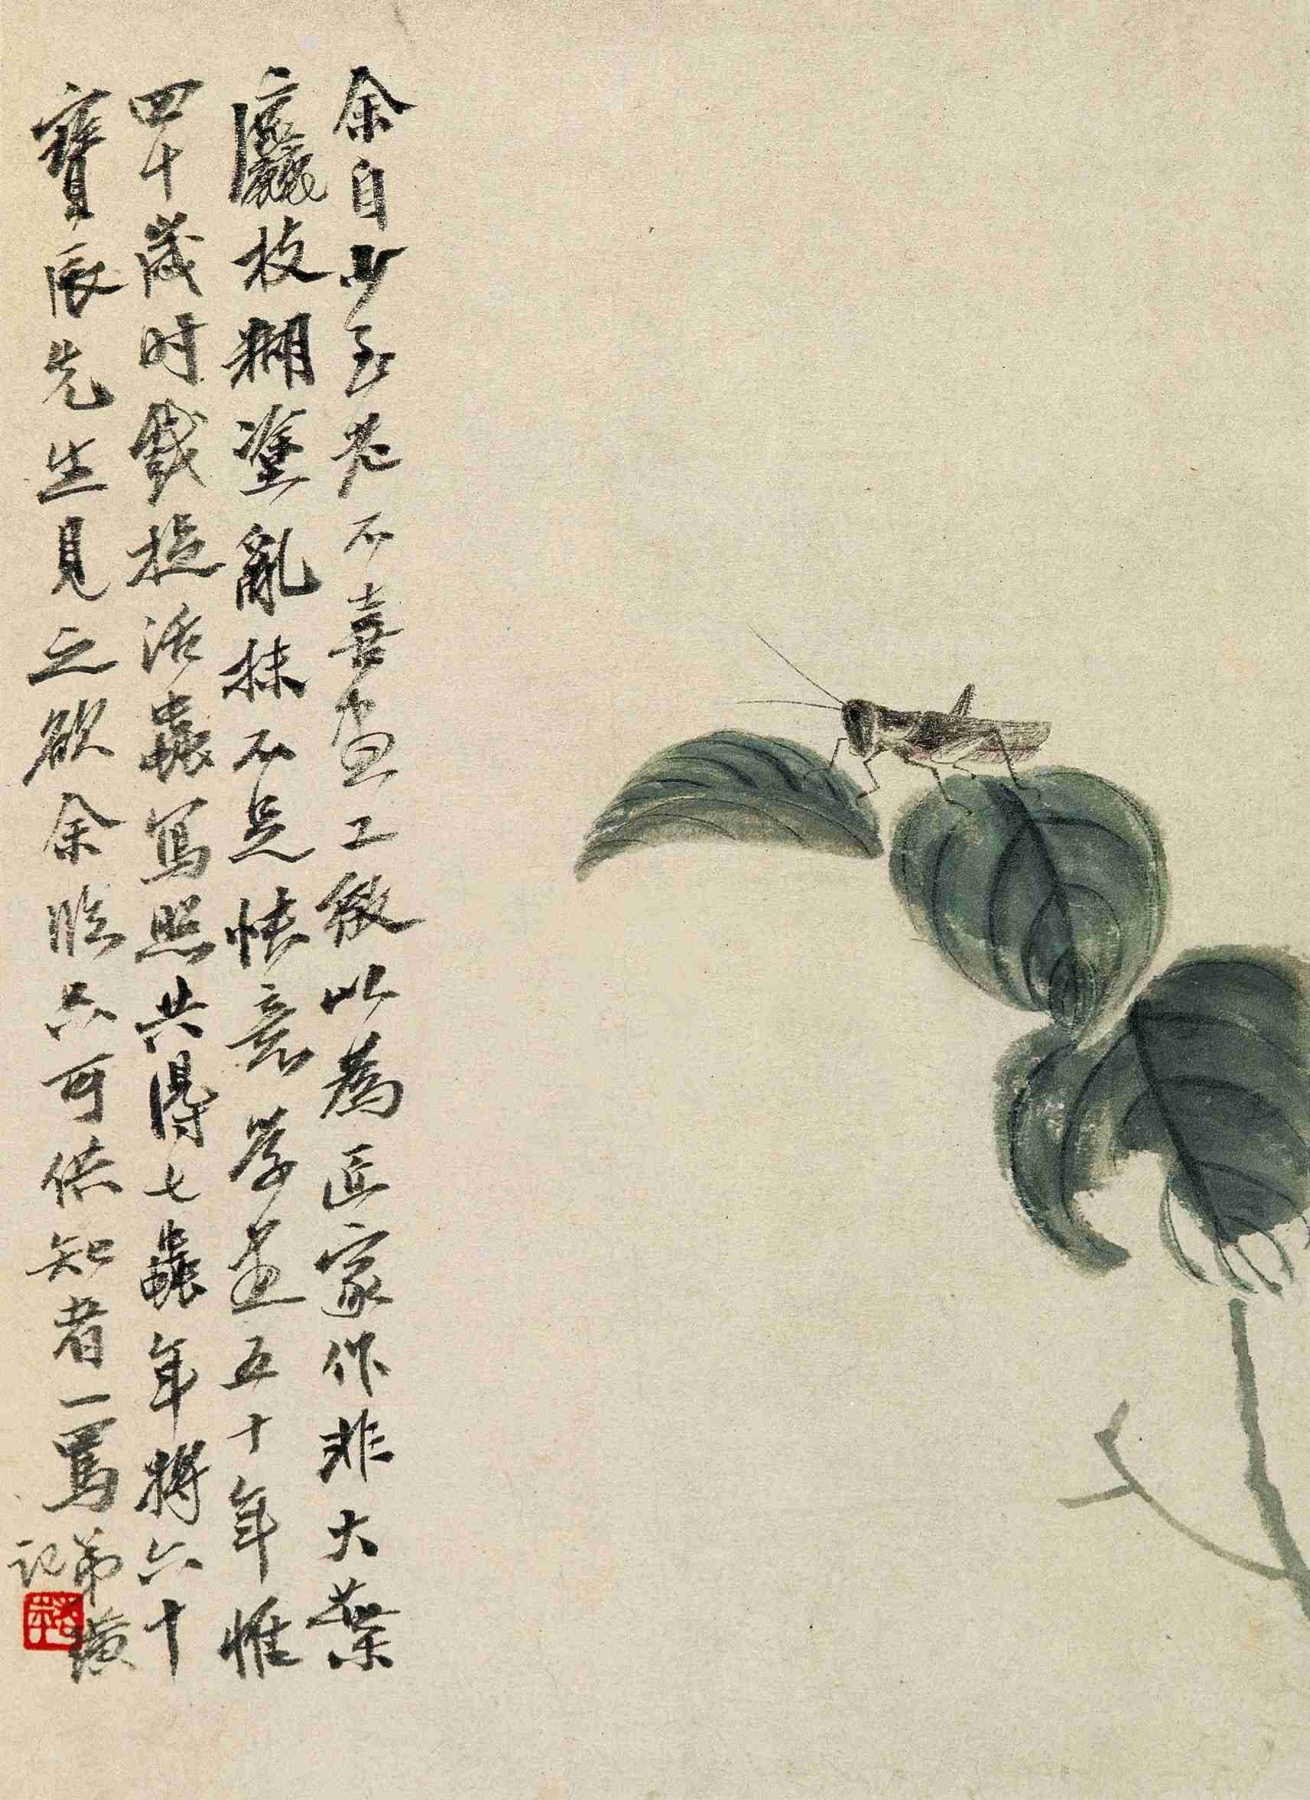 余自少至老不喜画工致以為匠家作非大葉
麤枝糊塗亂抹不足快意學画五十年惟
四十歲时戲捉活蟲寫照共得七蟲年將六十
寶辰先生見之欲余臨只可供知者一罵弟璜
記